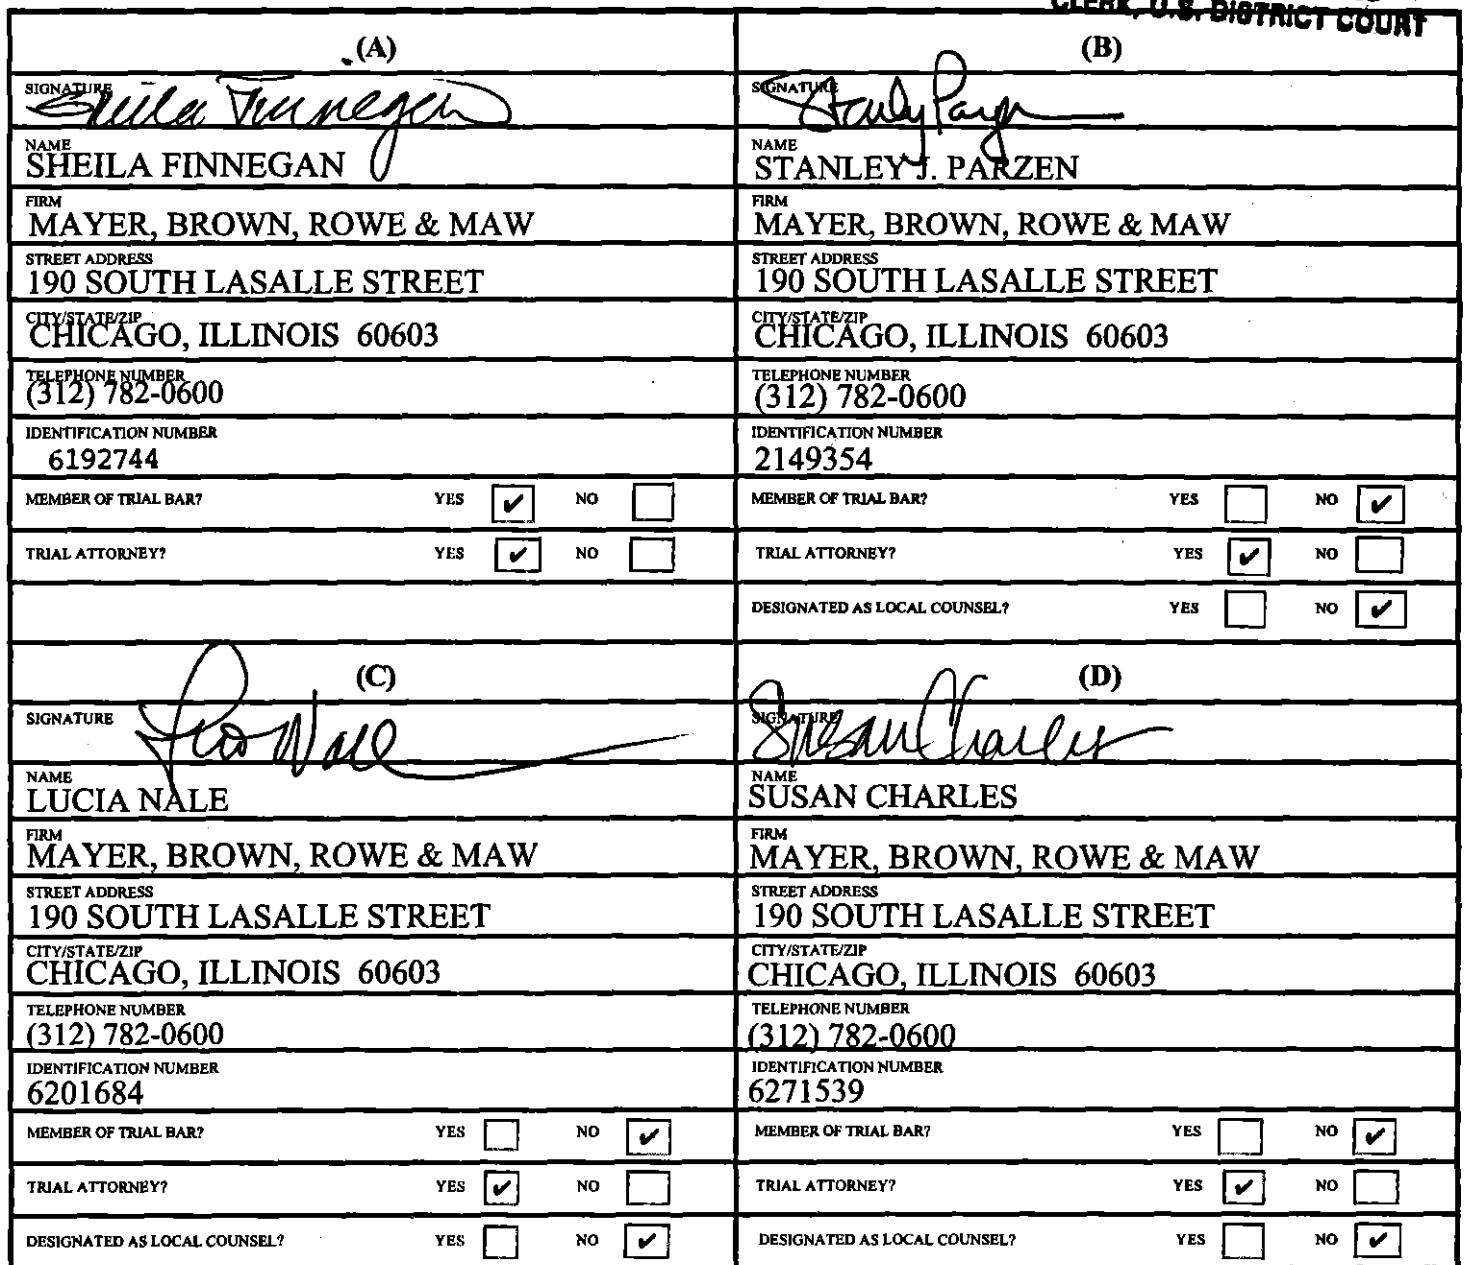 CLERK, U.S. DISTRICT COURT
(A)
SIGNATURE
Sheila Finnegan
NAME
SHEILA FINNEGAN
FIRM
MAYER, BROWN, ROWE & MAW
STREET ADDRESS
190 SOUTH LASALLE STREET
CITY/STATE/ZIP
CHICAGO, ILLINOIS 60603
TELEPHONE NUMBER
(312) 782-0600
IDENTIFICATION NUMBER
6192744
MEMBER OF TRIAL BAR? YES ✔ NO
TRIAL ATTORNEY? YES ✔ NO
(B)
SIGNATURE
Stanley Parzen
NAME
STANLEY J. PARZEN
FIRM
MAYER, BROWN, ROWE & MAW
STREET ADDRESS
190 SOUTH LASALLE STREET
CITY/STATE/ZIP
CHICAGO, ILLINOIS 60603
TELEPHONE NUMBER
(312) 782-0600
IDENTIFICATION NUMBER
2149354
MEMBER OF TRIAL BAR? YES NO ✔
TRIAL ATTORNEY? YES ✔ NO
DESIGNATED AS LOCAL COUNSEL? YES NO ✔
(C)
SIGNATURE
Lucia Nale
NAME
LUCIA NALE
FIRM
MAYER, BROWN, ROWE & MAW
STREET ADDRESS
190 SOUTH LASALLE STREET
CITY/STATE/ZIP
CHICAGO, ILLINOIS 60603
TELEPHONE NUMBER
(312) 782-0600
IDENTIFICATION NUMBER
6201684
MEMBER OF TRIAL BAR? YES NO ✔
TRIAL ATTORNEY? YES ✔ NO
DESIGNATED AS LOCAL COUNSEL? YES NO ✔
(D)
SIGNATURE
Susan Charles
NAME
SUSAN CHARLES
FIRM
MAYER, BROWN, ROWE & MAW
STREET ADDRESS
190 SOUTH LASALLE STREET
CITY/STATE/ZIP
CHICAGO, ILLINOIS 60603
TELEPHONE NUMBER
(312) 782-0600
IDENTIFICATION NUMBER
6271539
MEMBER OF TRIAL BAR? YES NO ✔
TRIAL ATTORNEY? YES ✔ NO
DESIGNATED AS LOCAL COUNSEL? YES NO ✔